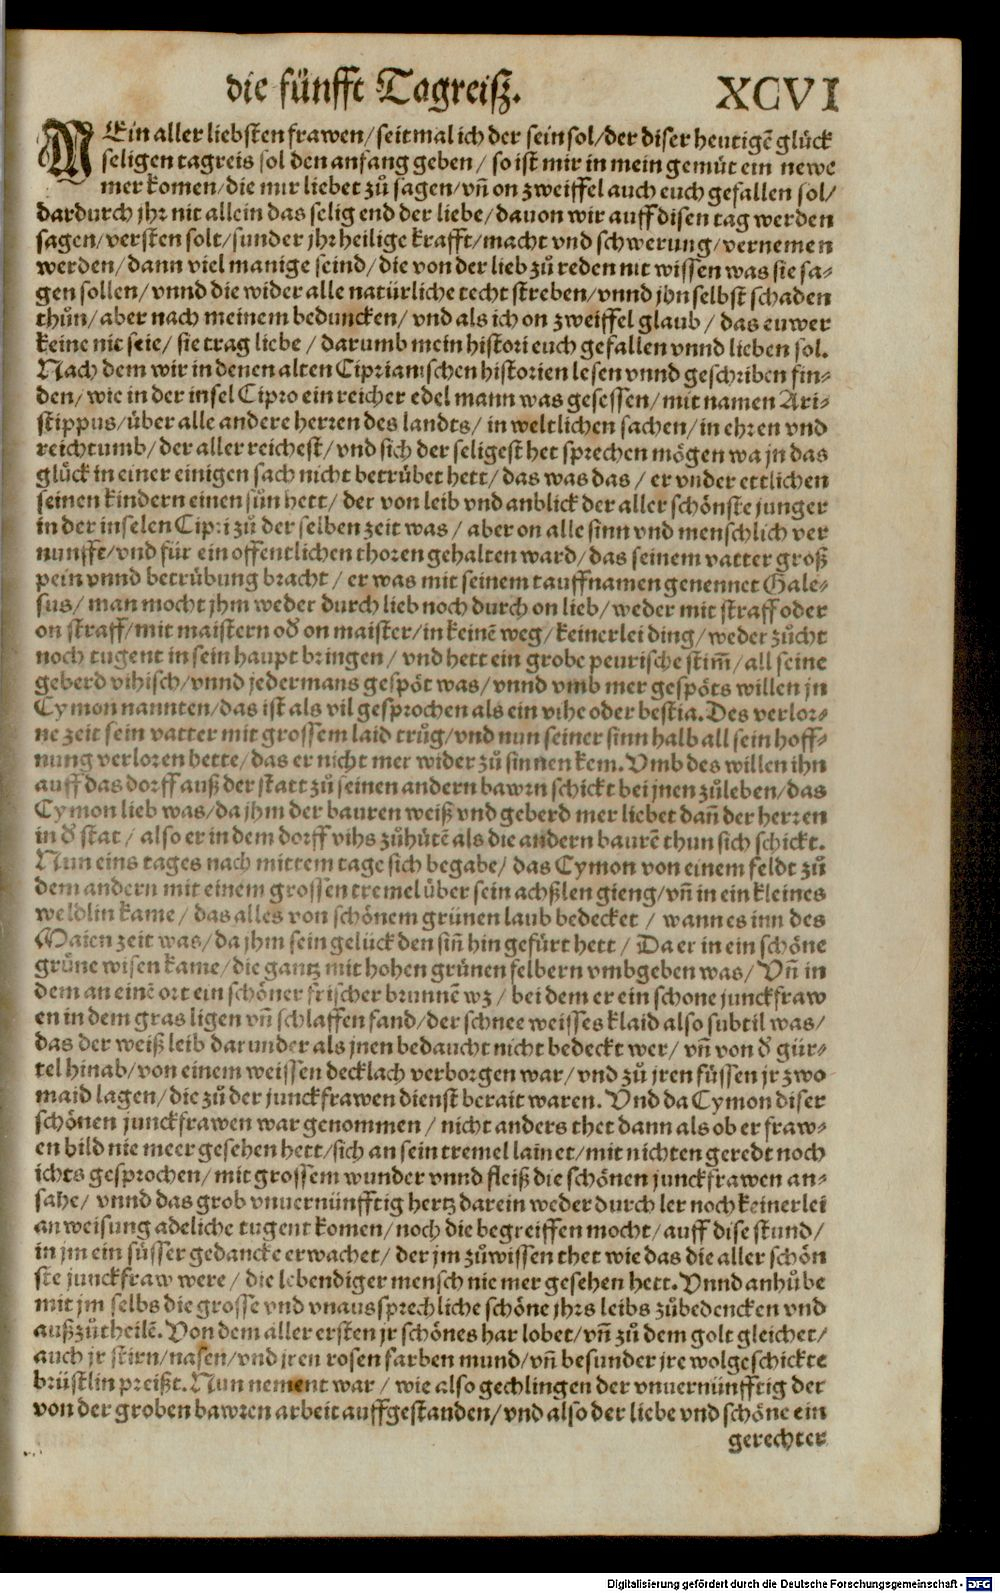 die fünfft Tagreisz.
XCVI
MEin aller liebsten frawen/ seitmal ich der sein sol/ der diser heutigẽ glück
seligen tagreis sol den anfang geben/ so ist mir in mein gemüt ein newe
mer komen/ die mir liebet zů sagen/ vñ on zweiffel auch euch gefallen sol/
dardurch jhr nit allein das selig end der liebe/ dauon wir auff disen tag werden
sagen/ versten solt/ sunder jhr heilige krafft/ macht vnd schwerung/ vernemen
werden/ dann viel manige seind/ die von der lieb zů reden nit wissen was sie sa-
gen sollen/ vnnd die wider alle natürliche recht streben/ vnnd jhn selbst schaden
thůn/ aber nach meinem beduncken/ vnd als ich on zweiffel glaub/ das euwer
keine nit seie/ sie trag liebe/ darumb mein histori euch gefallen vnnd lieben sol.
Nach dem wir in denen alten Ciprianischen historien lesen vnnd geschriben fin-
den/ wie in der insel Cipro ein reicher edel mann was gesessen/ mit namen Ari-
stippus/ über alle andere herren des landts/ in weltlichen sachen/ in ehren vnd
reichtumb/ der aller reichest/ vnd sich der seligest het sprechen mögen wa jn das
glück in einer einigen sach nicht betrübet hett/ das was das/ er vnder ettlichen
seinen kindern einen sůn hett/ der von leib vnd anblick der aller schönste junger
in der inselen Cipri zů der selben zeit was/ aber on alle sinn vnd menschlich ver
nunfft/ vnd für ein offentlichen thoren gehalten ward/ das seinem vatter groß
pein vnnd betrübung bracht/ er was mit seinem tauffnamen genennet Gale-
sus/ man mocht jhm weder durch lieb noch durch on lieb/ weder mit straff oder
on straff/ mit maistern oď on maister/ in keinẽ weg/ keinerlei ding/ weder zůcht
noch tugent in sein haupt bringen/ vnd hett ein grobe peurische stim̃/ all seine
geberd vihisch/ vnnd jedermans gespöt was/ vnnd vmb mer gespöts willen jn
Cymon nannten/ das ist als vil gesprochen als ein vihe oder bestia. Des verlor-
ne zeit sein vatter mit grossem laid trůg/ vnd nun seiner sinn halb all sein hoff-
nung verloren hette/ das er nicht mer wider zů sinnen kem. Vmb des willen ihn
auff das dorff auß der statt zů seinen andern bawrn schickt bei jnen zůleben/ das
Cymon lieb was/ da jhm der bauren weiß vnd geberd mer liebet dañ der herren
in ď stat/ also er in dem dorff vihs zůhütẽ als die andern baurẽ thun sich schickt.
Nun eins tages nach mittem tage sich begabe/ das Cymon von einem feldt zů
dem andern mit einem grossen tremel über sein achßlen gieng/ vñ in ein kleines
weldlin kame/ das alles von schönem grünen laub bedecket/ wann es inn des
Maien zeit was/ da jhm sein gelück den siñ hin gefürt hett/ Da er in ein schöne
grüne wisen kame/ die gantz mit hohen grünen felbern vmbgeben was/ Vñ in
dem an einẽ ort ein schöner frischer brunnẽ wz/ bei dem er ein schone junckfraw
en in dem gras ligen vñ schlaffen fand/ der schnee weisses klaid also subtil was/
das der weiß leib darunder als jnen bedaucht nicht bedeckt wer/ vñ von ď gür-
tel hinab/ von einem weissen decklach verborgen war/ vnd zů jren füssen jr zwo
maid lagen/ die zů der junckfrawen dienst berait waren. Vnd da Cymon diser
schönen junckfrawen war genommen/ nicht anders thet dann als ob er fraw-
en bild nie meer gesehen hett/ sich an sein tremel lainet/ mit nichten geredt noch
ichts gesprochen/ mit grossem wunder vnnd fleiß die schönen junckfrawen an-
sahe/ vnnd das grob vnuernünfftig hertz darein weder durch ler noch keinerlei
anweisung adeliche tugent komen/ noch die begreiffen mocht/ auff dise stund/
in jm ein süsser gedancke erwachet/ der jm zůwissen thet wie das die aller schön
ste junckfraw were/ die lebendiger mensch nie mer gesehen hett. Vnnd anhůbe
mit jm selbs die grosse vnd vnaussprechliche schöne jhrs leibs zůbedencken vnd
außzůtheilẽ. Von dem aller ersten jr schönes har lobet/ vñ zů dem golt gleichet/
auch jr stirn/ nasen/ vnd jren rosen farben mund/ vñ besunder jre wolgeschickte
brüstlin preißt. Nun nement war/ wie also gechlingen der vnuernünfftig der
von der groben bawren arbeit auffgestanden/ vnd also der liebe vnd schöne ein
gerechter
Digitalisierung gefördert durch die Deutsche Forschungsgemeinschaft - DFG